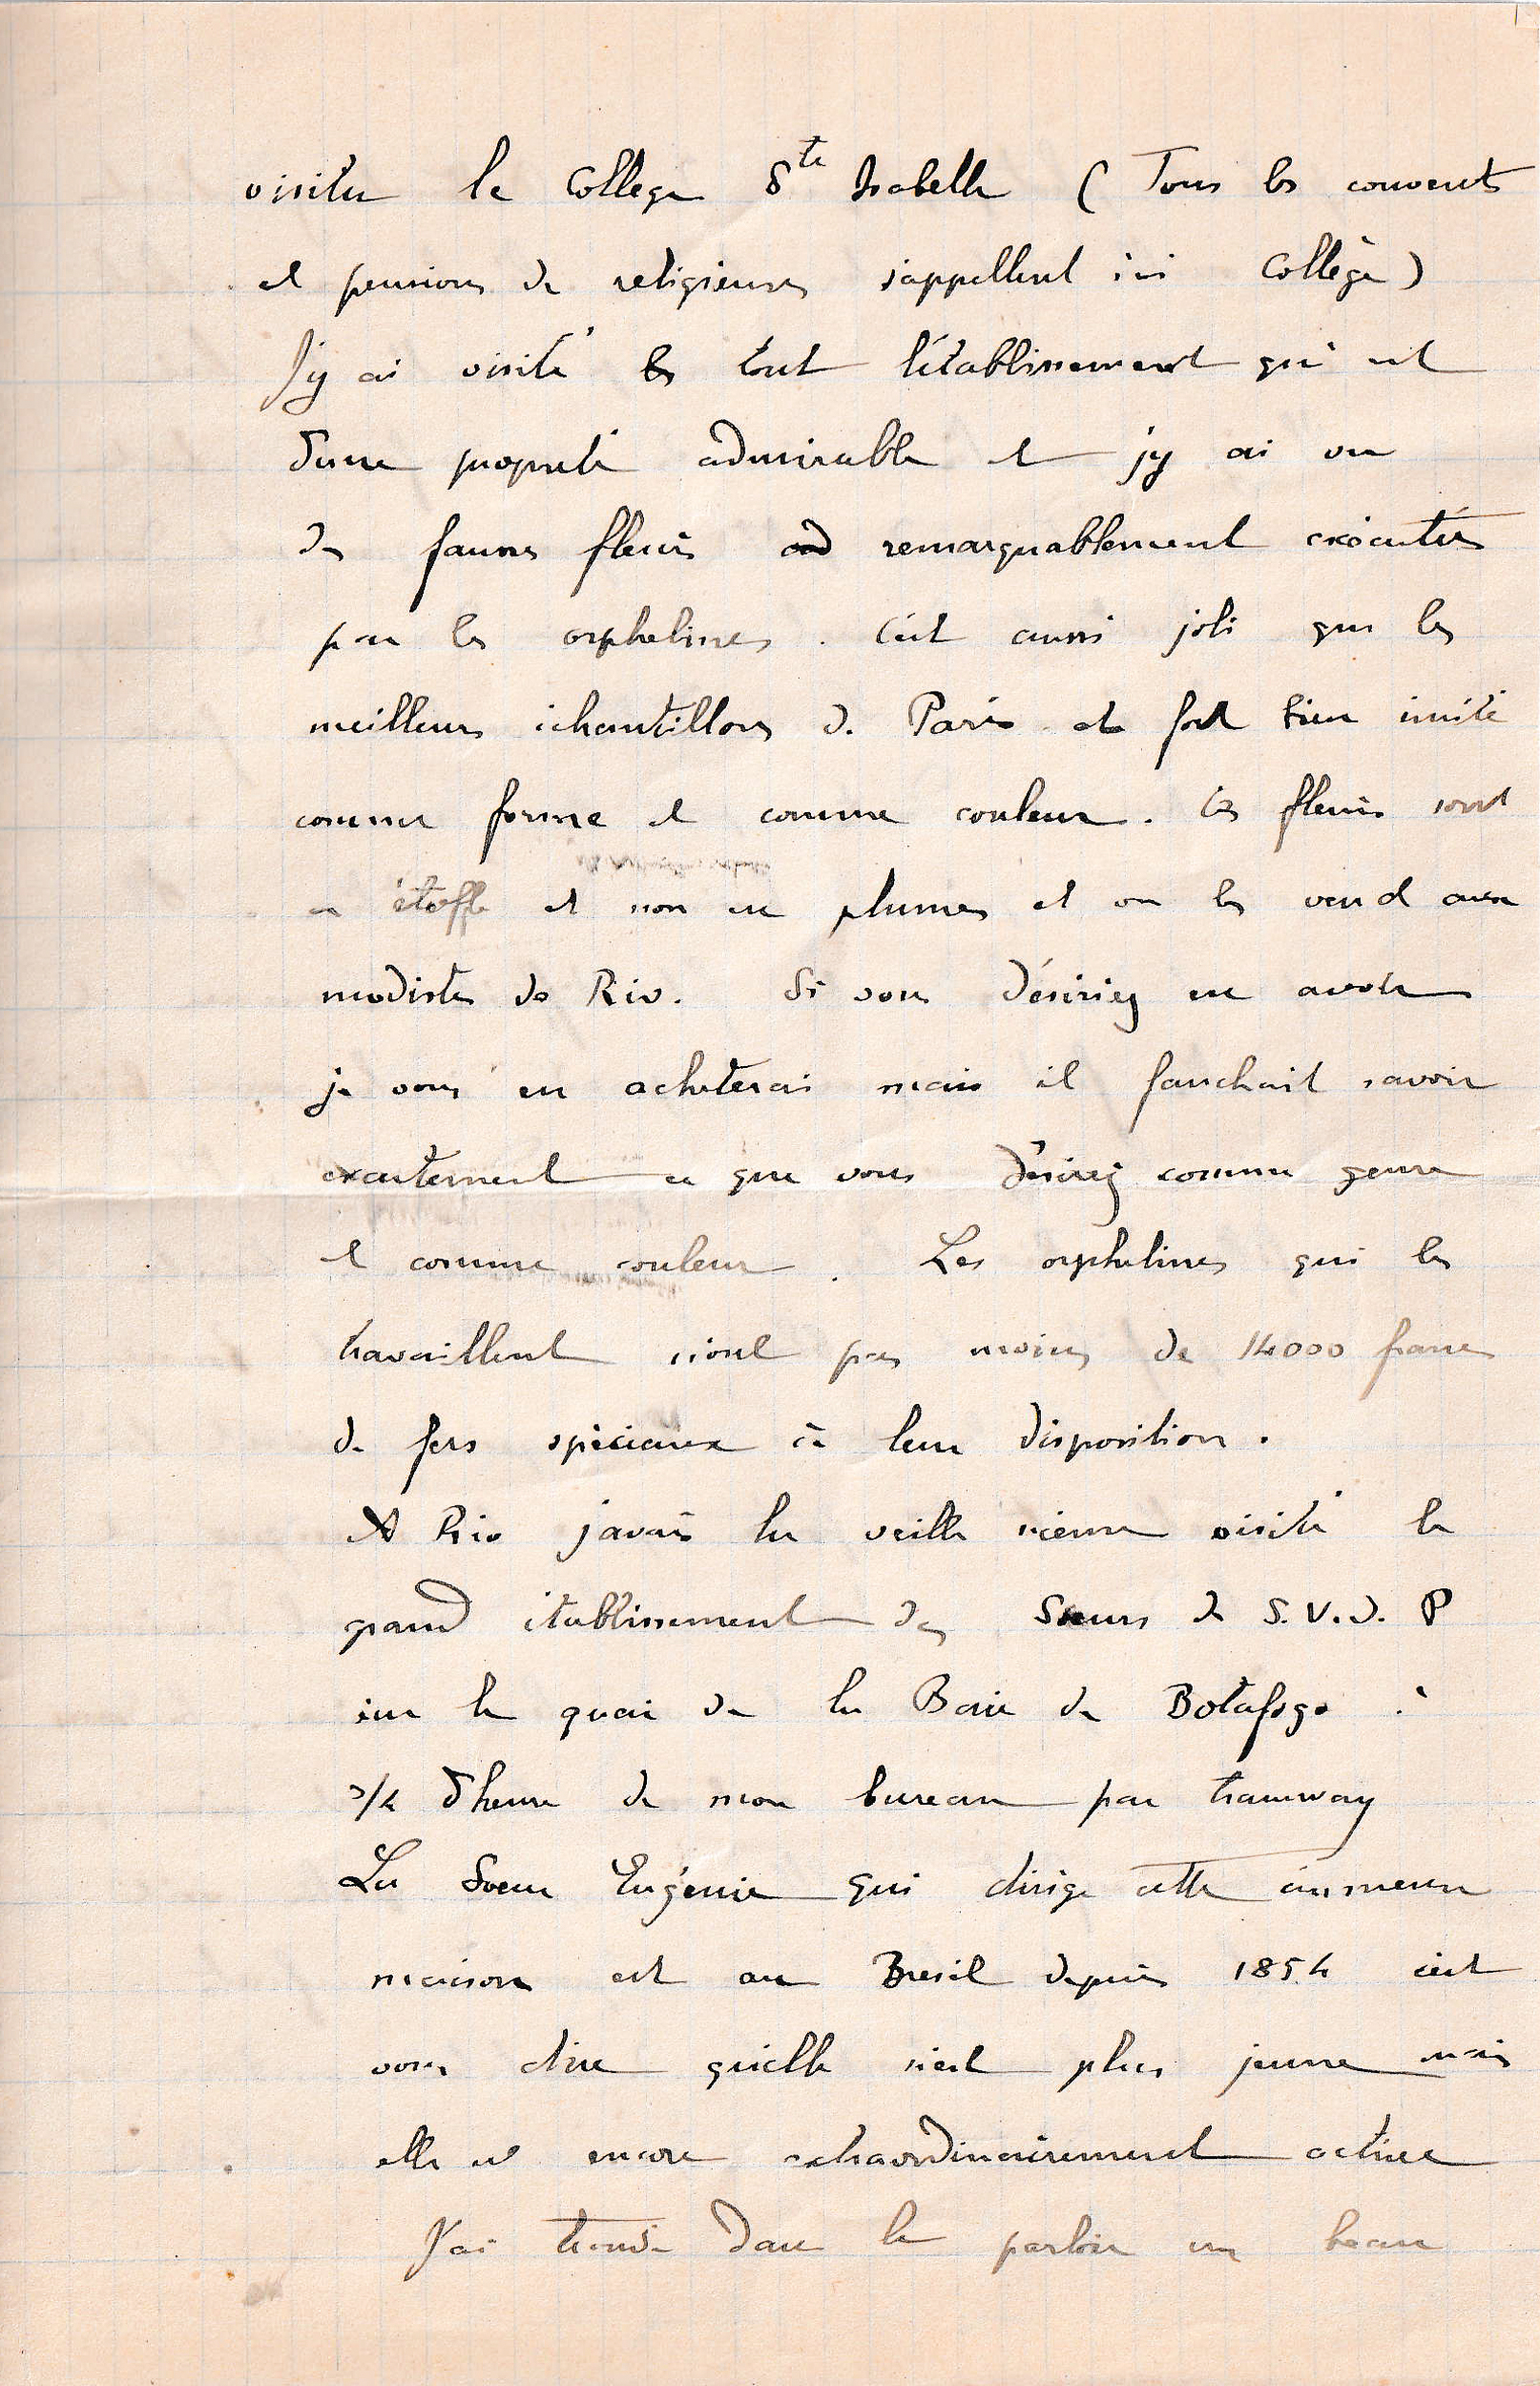 visiter le Collège Ste Isabelle ( Tous les couvents
et pensions de religieuses s'appellent ici Collège)
J'y ai visité tout l'établissement qui est
d'une propreté admirable et j'y ai vu
des fausses fleurs remarquablement exécutées
par les orphelines. C'est aussi joli que les
meilleurs échantillons de Paris et fort bien imité
comme forme et comme couleur. Ces fleurs sont
en étoffe et non en plumes et on les vend aux
modistes de Rio. Si vous désiriez en avoir
je vous en achèterai mais il faudrait savoir
exactement ce que vous désirez comme genre
et comme couleur. Les orphelines qui les
travaillent n'ont pas moins de 14000 francs
de fers spéciaux à leur disposition.
A Rio j'avais la veille même visité le
grand établissement des Sœurs de S.V.d.P
sur le quai de la Baie de Botafogo à
3/4 d'heure de mon bureau par tramway
La Sœur Eugénie qui dirige cette immense
maison est au Brésil depuis 1854 c'est
vous dire qu'elle n'est plus jeune mais
elle est encore extraordinairement active
J'ai trouvé dans le parloir un beau